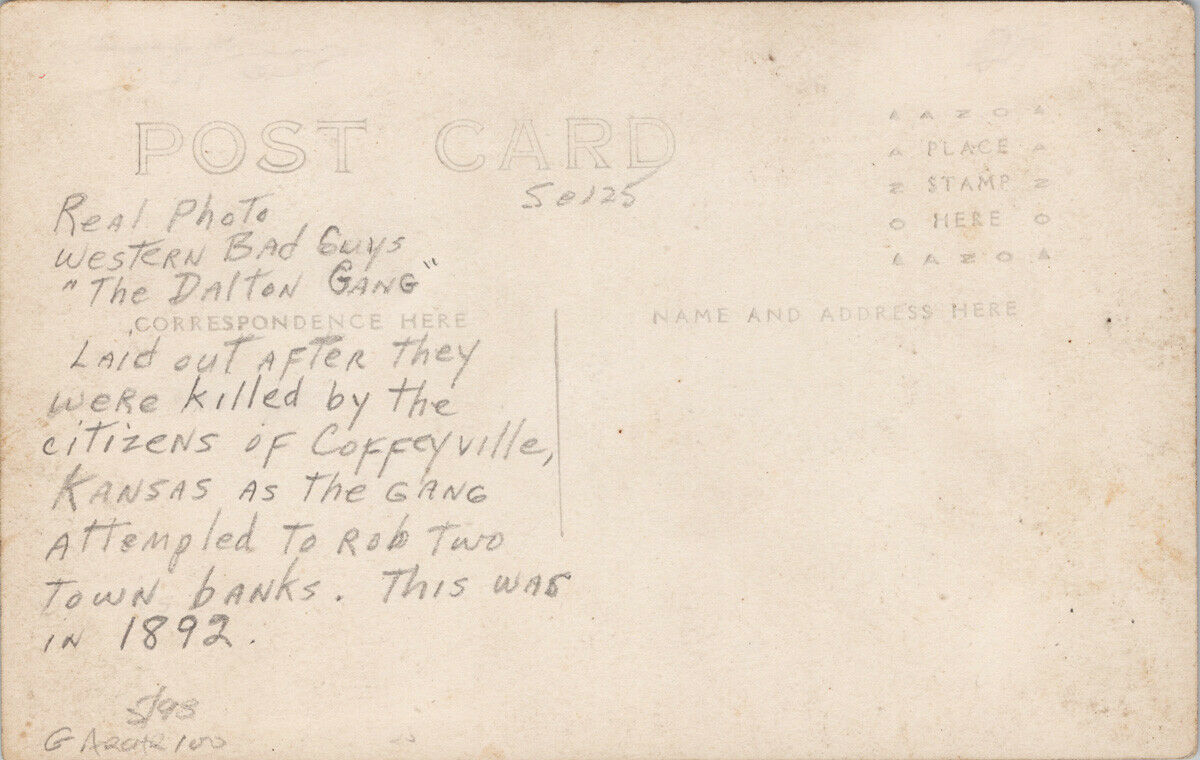 POST CARD
AZO
PLACE
STAMP
HERE
AZO
Real Photo
Western Bad Guys
"The Dalton Gang"
CORRESPONDENCE HERE
NAME AND ADDRESS HERE
Laid out after they
were killed by the
citizens of Coffeyville,
Kansas as the gang
attempled to rob two
town banks. This was
in 1892.
5/93